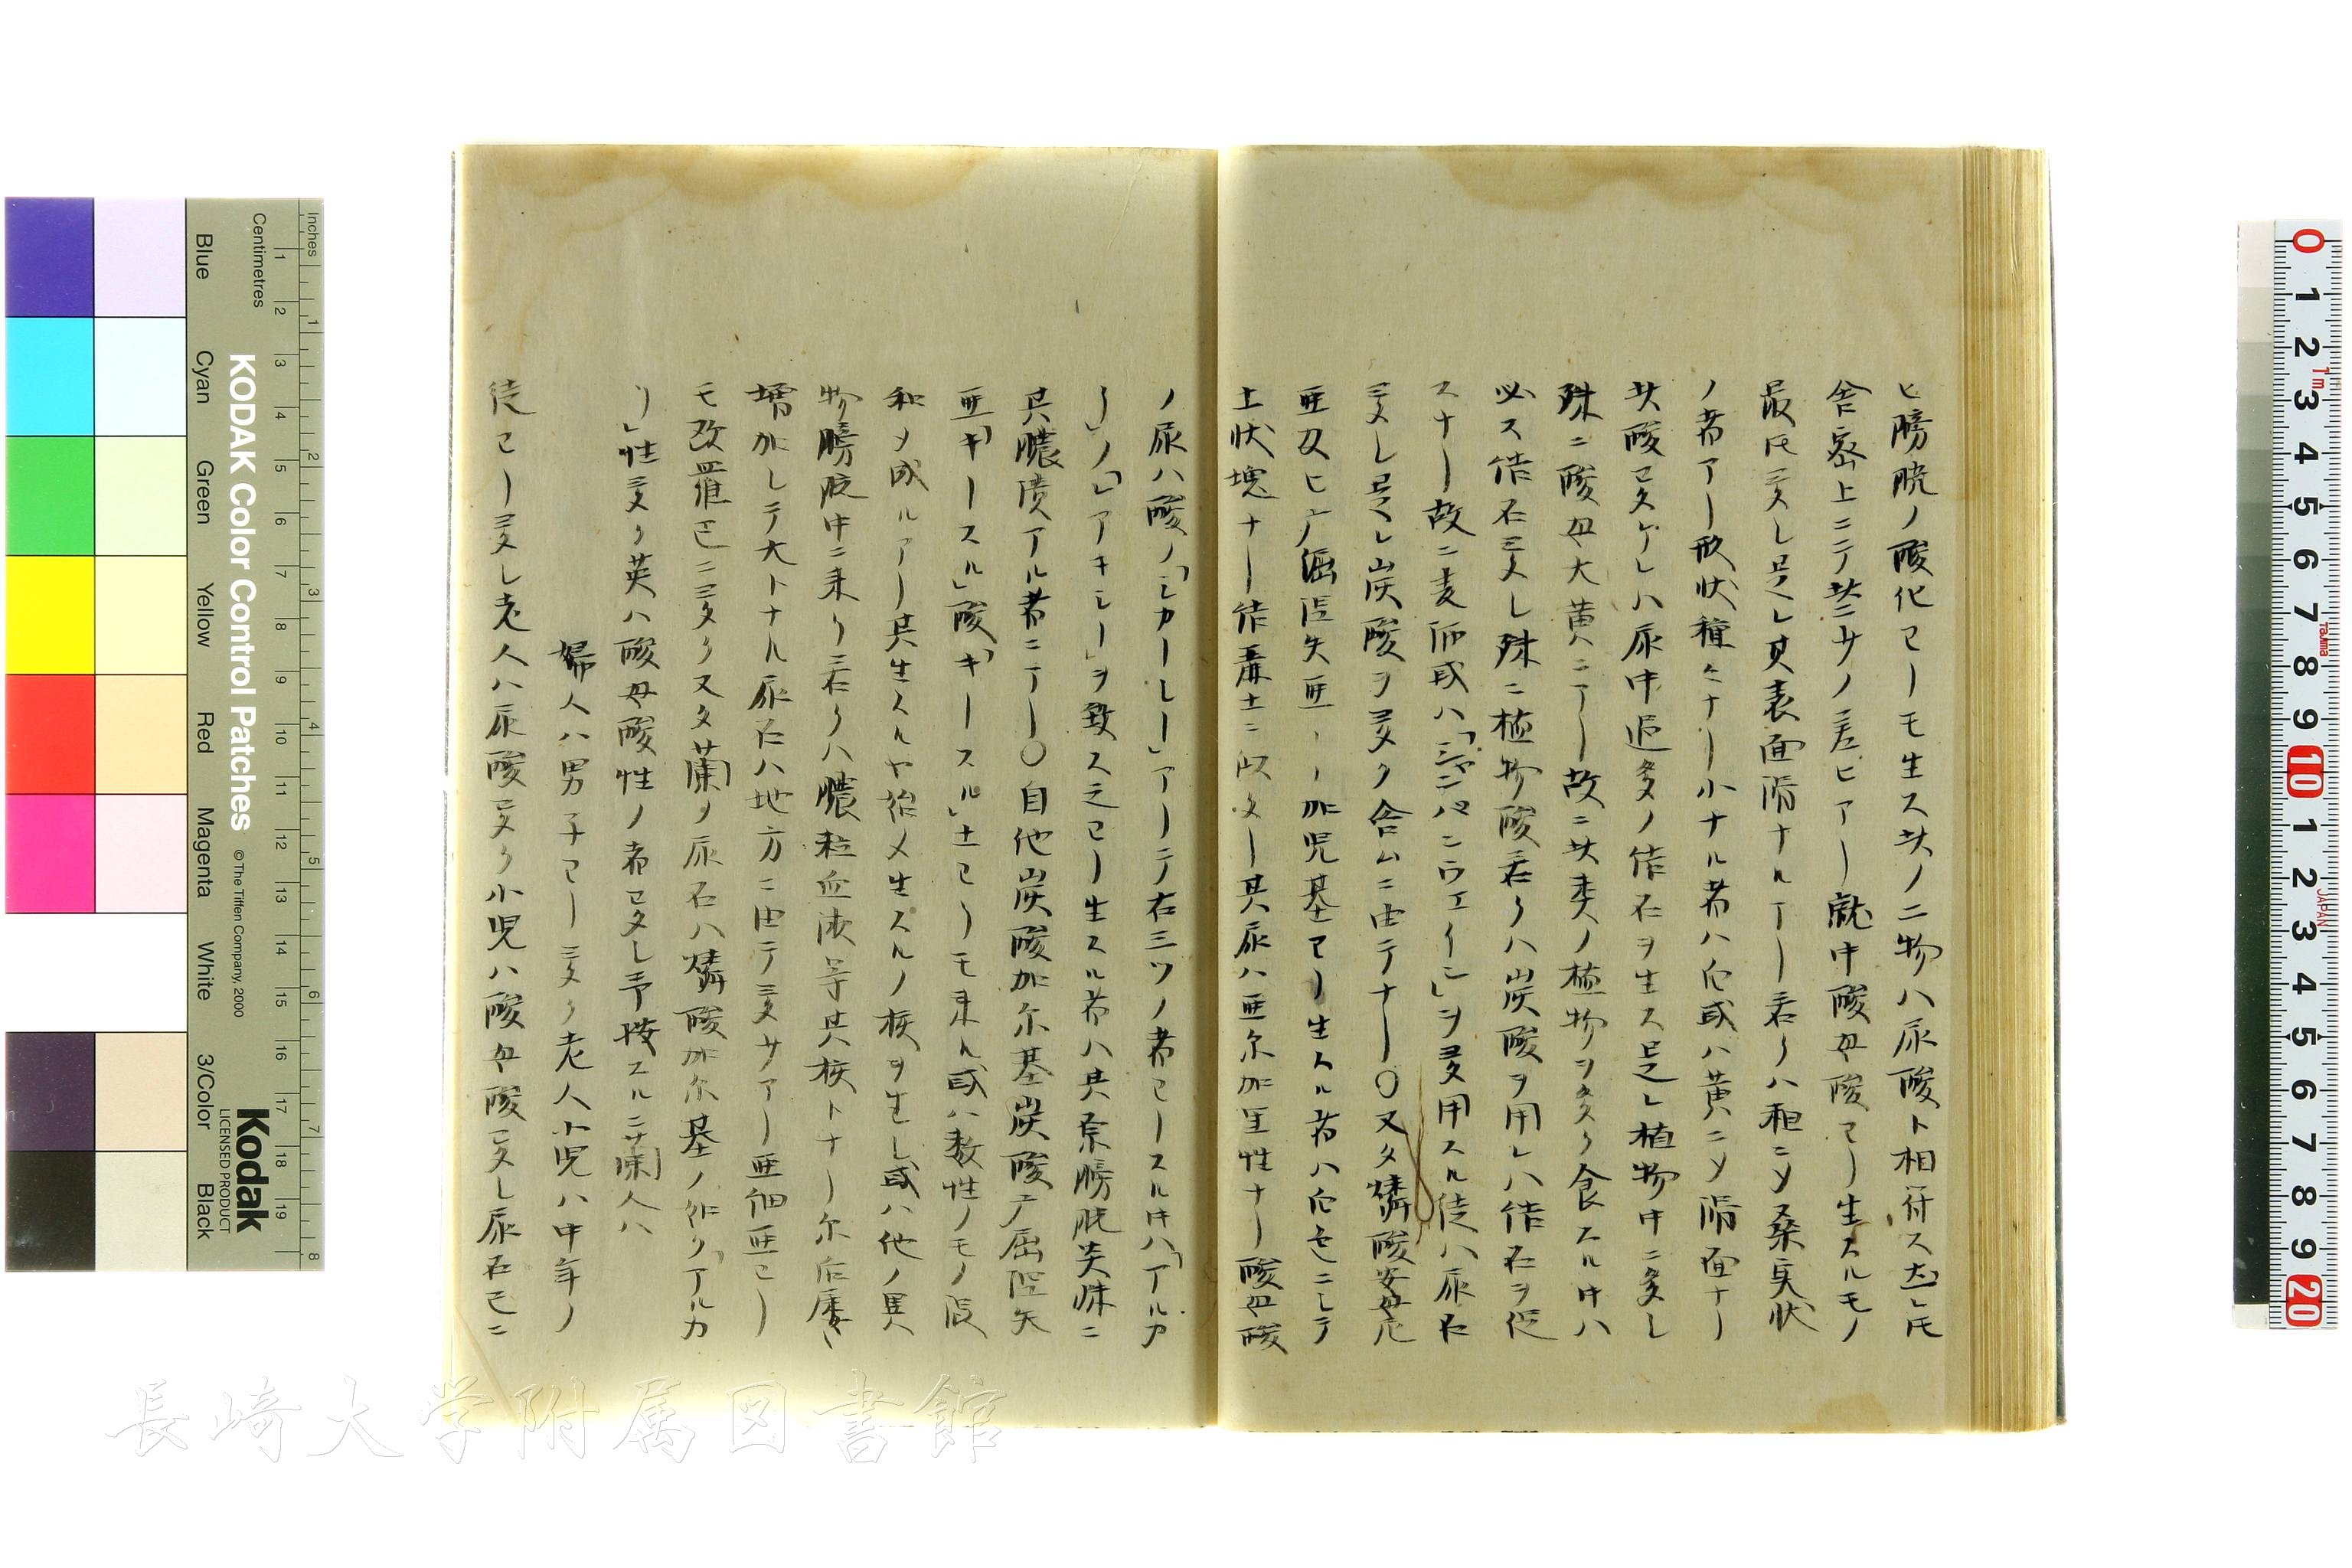 ヒ膀胱ノ酸化ヨリモ生ス共ノ二物ハ尿酸ト相符ス然レ𪜈
舎密上ニテ共ニ少ノ差ヒアリ就中酸母酸ヨリ生スルモノ
最𪜈多シ是レ其表面滑ナルアリ若クハ粗ニメ桑実状
ノ者アリ形状種々ナリ小ナル者ハ白或ハ黄ニメ滑面ナリ
共酸已多ケレハ尿中過多ノ結石ヲ生ス是レ植物中ニ多シ
殊ニ酸母大黄ニアリ故ニ共類ノ植物ヲ多ク食スル时ハ
必ス結石多シ殊ニ植物酸若クハ炭酸ヲ用レハ結石ヲ促
スナリ故ニ麦酒或ハ「シャンパンウエイン」ヲ多用スル徒ハ尿石
多シ是レ炭酸ヲ多ク含ムニ由テナリ〇又タ燐酸安母尼
亜及ヒ广屈涅矢亜ノ加児基ヨリ生スル者ハ白色ニシテ
土状塊ナリ結聚土ニ似タリ其尿ハ亜尓加里性ナリ酸母酸
ノ尿ハ酸ノ「シカーレー」アリテ右三ツノ者ヨリスル时ハ「アルカ
リ」ノ「レアキシー」ヲ致ス之ヨリ生スル者ハ其原膀胱焮衝ニ
其膿潰アル者ニアリ〇自他炭酸加尓基炭酸广屈涅矢
亜「キースル」酸「キースル」土ヨリモ来ル或ハ数性ノモノ仮
和メ成ルアリ其生スルヤ始メ生スルノ核ヲ生シ或ハ他ノ異
物膀胱中ニ来リ若クハ膿粒血液等其核トナリ尓后屡々
増加シテ大トナル尿石ハ地方ニ由テ多少アリ亜細亜ヨリ
モ改羅巴ニ多ク又タ蘭ノ尿石ハ燐酸加尓基ノ和ク「アルカ
リ」性多ク英ハ酸母酸性ノ者ヨタシ予按スルニ蘭人ハ
婦人ハ男子ヨリ多ク老人小児ハ中年ノ
徒ヨリ多シ老人ハ尿酸多ク小児ハ酸母酸多シ尿石已ニ
Inches
Centimetres
Blue Cyan Green Yellow Red Magenta White 3/Color Black
KODAK Color Control Patches © The Tiffen Company, 2000
Kodak
LICENSED PRODUCT
長崎大学附属図書館